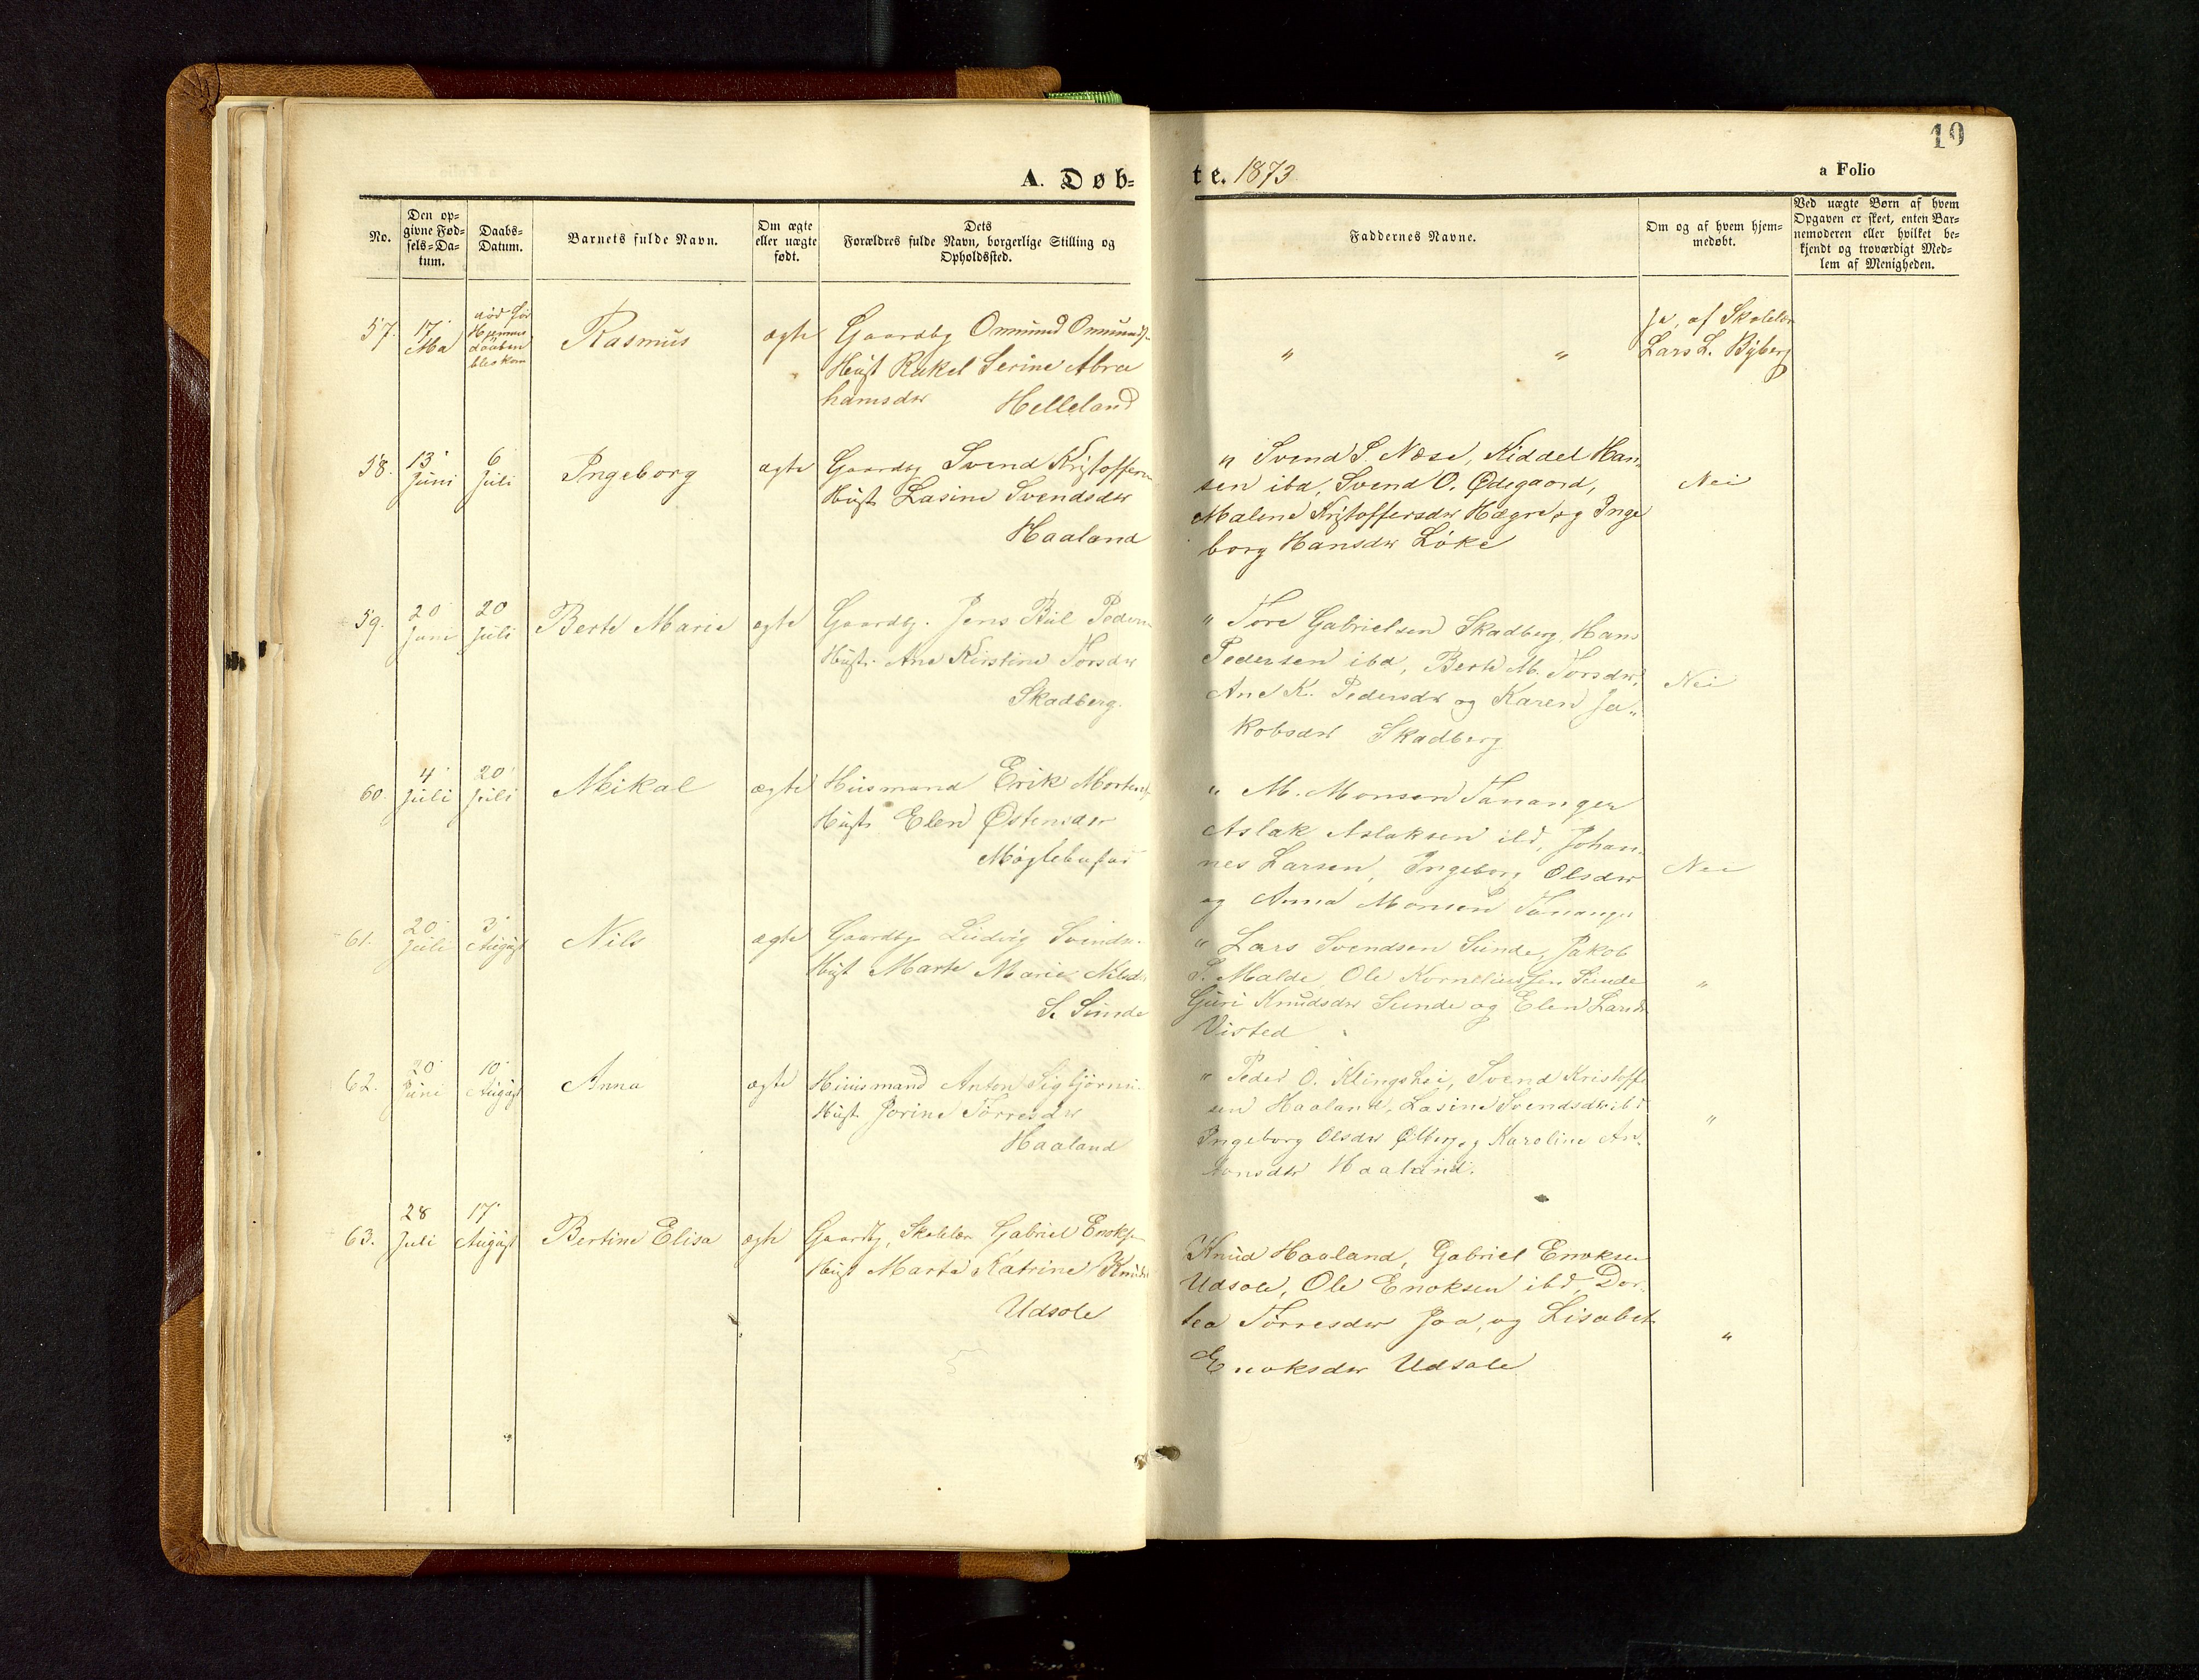 19
A. Døb-
te. 1873
a Folio
No.
Den op-
givne Fød-
sels-Da-
tum.
Daabs-
Datum.
Barnets fulde Navn.
Om ægte
eller uægte
født.
Dets
Forældres fulde Navn, borgerlige Stilling og
Opholdssted.
Faddernes Navne.
Om og af hvem hjem-
medøbt.
Ved uægte Børn af hvem
Opgaven er skeet, enten Bar-
nemoderen eller hvilket be-
kjendt og troværdigt Med-
lem af Menigheden.
57. 17 Rasmus ægte Gaardbg Omund Omunds.
Hust Rakel Serine Abra
hamsdtr Helleland
" "
Ja, af Skolelær
Lars L. Byberg
58. 13 Juni 6 Juli Ingeborg ægte Gaardbg Svend Kristoffersen
Hust Lasine Svendsdtr
Haaland
" Svend S. Næse, Kiddel Han-
sen ibd, Svend O. Ødegaard,
Malene Kristoffersdtr Hægre, og Inge
borg Hansdtr Løke
Nei
59. 20 Juni 20 Juli Berte Marie ægte Gaardbg. Jens Pedersen
Hust. Ane Kirstine Torsdtr
Skadberg.
" Tore Gabrielsen Skadberg, Hans
Pedersen ibd, Berte M. Torsdtr,
Ane K. Pedersdtr og Karen Ja-
kobsdtr Skadberg
Nei
60. 4 Juli 20 Juli Mikal ægte Husmand Erik Mortens
Hust Elen Østensdtr
" M. Monsen Tananger
Aslak Aslaksen ibd, Johan-
nes Larsen, Ingeborg Olsdtr
og Anna Monsen Tananger
Nei
61. 20 Juli 3 August Nils ægte Gaardbg Ludvig Svends.
Hust Marte Marie Nilsd
S. Sunde
" Lars Svendsen Sunde, Jakob
S. Malde, Ole Korneliussen Sunde
Guri Knudsdtr Sunde og Elen Larsd
Visted
"
62. 20 Juni 10 August Anna ægte Huusmand Anton Sigbjørns.
Hust. Jorine Torresdtr
Haaland
" Peder O. Klingshei, Svend Kristoffe
sen Haaland, Lasine Svendsdtr ibd
Ingeborg Olsdtr Ølberg, og Karoline An-
tonsdtr Haaland.
"
63. 28 Juli 17 August Bertine Elisa ægte Gaardbg, Skolelær Gabriel Enoks
Hust Marta Katrine Knuds
Udsole
Knud Haaland, Gabriel Enoksen
Udsole, Ole Enoksen ibd, Dor-
tea Torresdtr Joa, og Lisabet
Enoksdtr Udsole
"